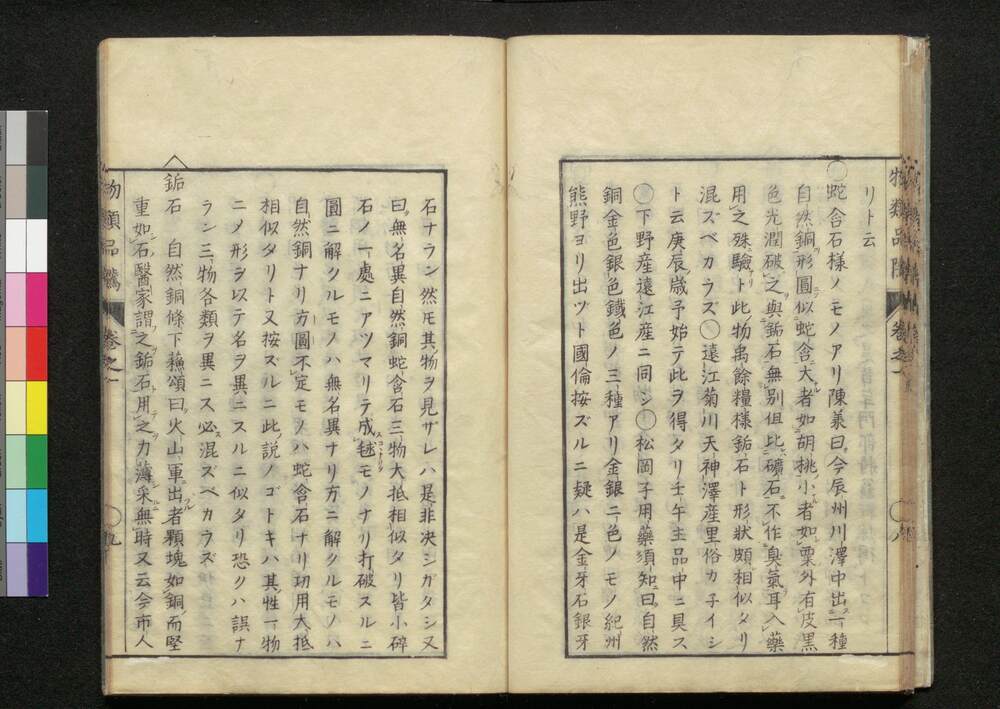 物類品隲 卷之一 〇八
リト云
〇蛇含石様ノモノアリ陳羕曰今辰州川澤中出一種
自然銅形圓似蛇含大者如胡桃小者如粟外有皮黒
色光潤破之與鉐石無別但比礦石不作臭氣耳入藥
用之殊驗ト此物禹餘糧様鉐石ト形狀頗相似タリ
混ズベカラズ〇遠江菊川天神澤産里俗カ子イシ
ト云庚辰歳予始テ此ヲ得タリ壬午主品中ニ具ス
〇下野産遠江産ニ同シ〇松岡子用藥須知曰自然
銅金色銀色鐵色ノ三種アリ金銀二色ノモノ紀州
熊野ヨリ出ヅト國倫按ズルニ疑ハ是金牙石銀牙
石ナラン然ㇳモ其物ヲ見ザレハ是非決シガタシ又
曰無名異自然銅蛇含石三物大抵相似タリ皆小碎
石ノ一處ニアツマリテ成毬モノナリ打破スルニ
圓ニ解クルモノハ無名異ナリ方ニ解クルモノハ
自然銅ナリ方圓不定モノハ蛇含石ナリ功用大抵
相似タリト又按ズルニ此説ノゴトキハ其性一物
ニメ形ヲ以テ名ヲ異ニスルニ似タリ恐クハ誤ナ
ラン三物各類ヲ異ニス必混ズベカラズ
鉐石 自然銅條下蘓頌曰火山軍出者顆塊如銅而堅
重如石醫家謂之鉐石用之力薄采無時又云今市人
物類品隲 卷之一 〇九